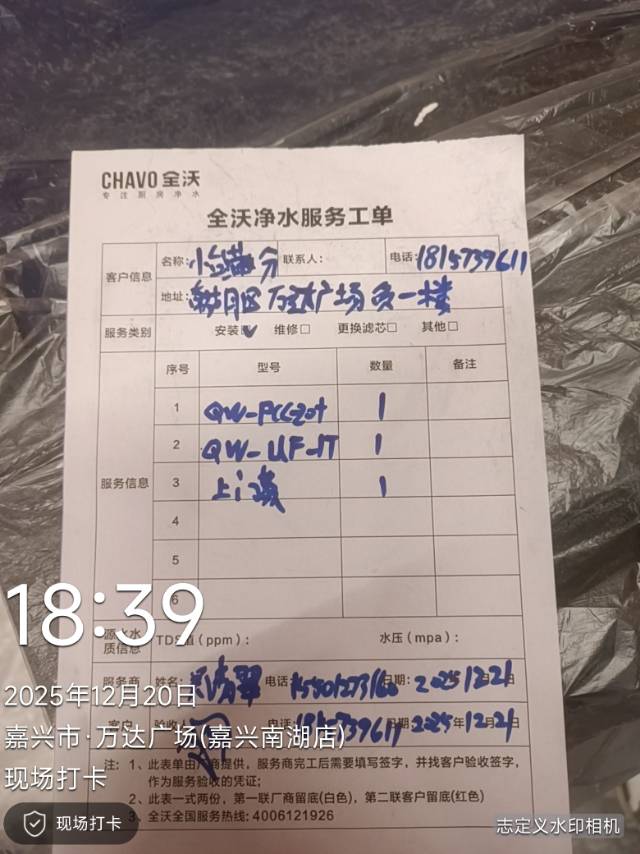 CHAVO 全沃
专注厨房净水
全沃净水服务工单
客户信息
名称: 联系人: 电话:1815739611
地址: 万达广场负一楼
服务类别 安装☑ 维修□ 更换滤芯□ 其他□
服务信息
序号 型号 数量 备注
1 1
2 QW-UF-1T 1
3 1
4
5
6
源水水质信息 TDS值(ppm): 水压(mpa):
服务商 姓名: 电话: 日期: 2025年12月21日
客户 验收人 电话 日期: 2025年12月21日
注: 1、此表单由厂商提供, 服务商完工后需要填写签字, 并找客户验收签字,
作为服务验收的凭证;
2、此表一式两份, 第一联厂商留底(白色), 第二联客户留底(红色)
3、全沃全国服务热线: 4006121926
18:39
2025年12月20日
嘉兴市·万达广场(嘉兴南湖店)
现场打卡
现场打卡
志定义水印相机